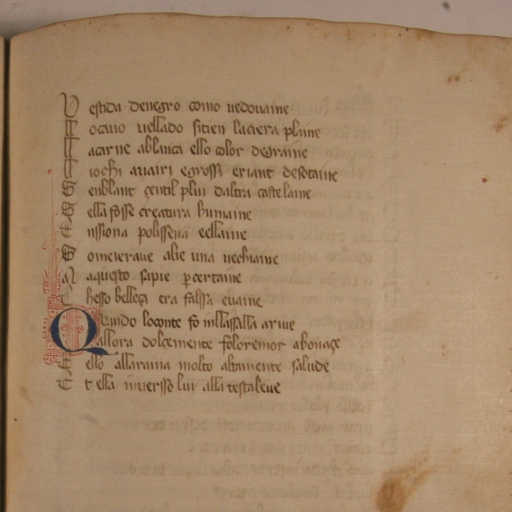 Vestida denegro como uedouaine
Tocauo uellado sitien laciera plaine
Lacarne ablanca ello color degraine
Liochi auairi egrossi eriant desotaine
Senblant çentil plui daltra castelaine
Sella fosse creatura humaine
Enissiona polissena eellaine
Someieraue alie una uechiaine
Maquesto sapie percertaine
Chesso belleça era falssa euaine
Quando loconte fo inllassalla ariue
Eallora dolçemente foloremor abonaçe
Eello allarama molto altamente salude
Et ella inuersso lui alla testaleue